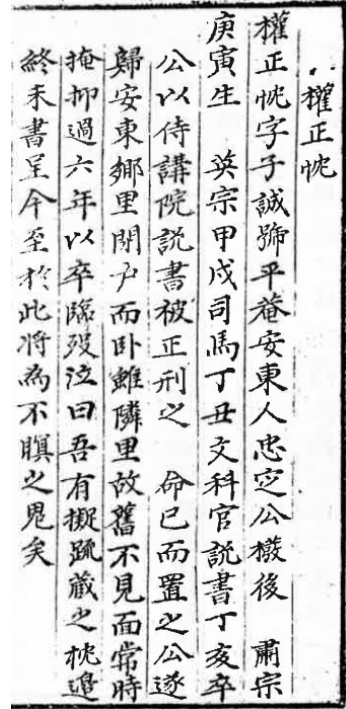 權正忱
權正忱字子誠號平菴安東人忠定公橃後 肅宗
庚寅生 英宗甲戌司馬丁丑文科官說書丁亥卒
公以侍講院說書被正刑之 命已而置之公遂
歸安東鄉里閉户而卧雖隣里故舊不見面常時
掩抑過六年以卒臨歿泣曰吾有擬疏藏之枕邉
終未書呈今至於此将為不瞑之鬼矣